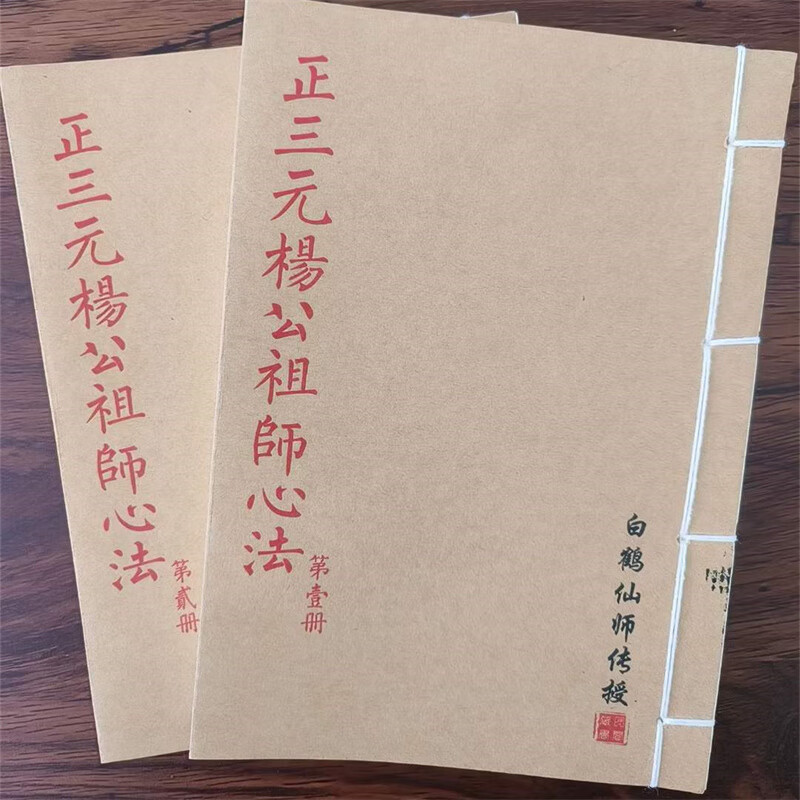 正三元楊公祖師心法
第壹册
白鹤仙师传授
正三元楊公祖師心法
第貳册